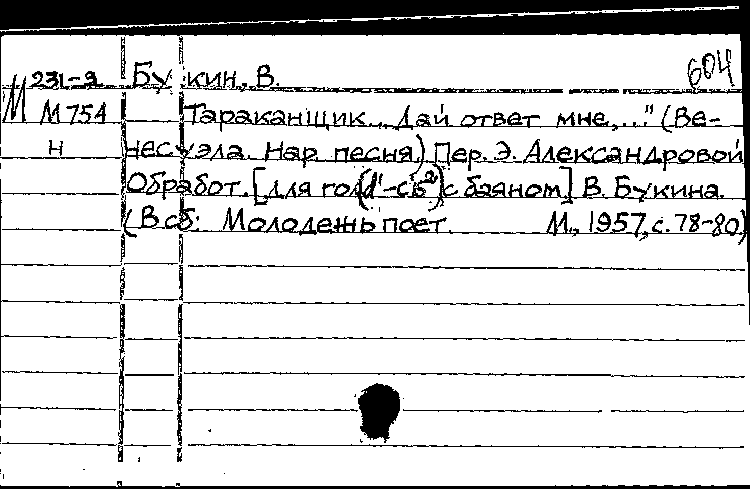 604
М 231-3 Букин, В.
М 754 Тараканщик. "Дай ответ мне,..." (Ве-
н несуэла. Нар. песня.) Пер. Э. Александровой
Обработ. [для гол. (d¹-cis²) с баяном] В. Букина.
(В сб: Молодежь поет. М., 1957, с. 78-80)